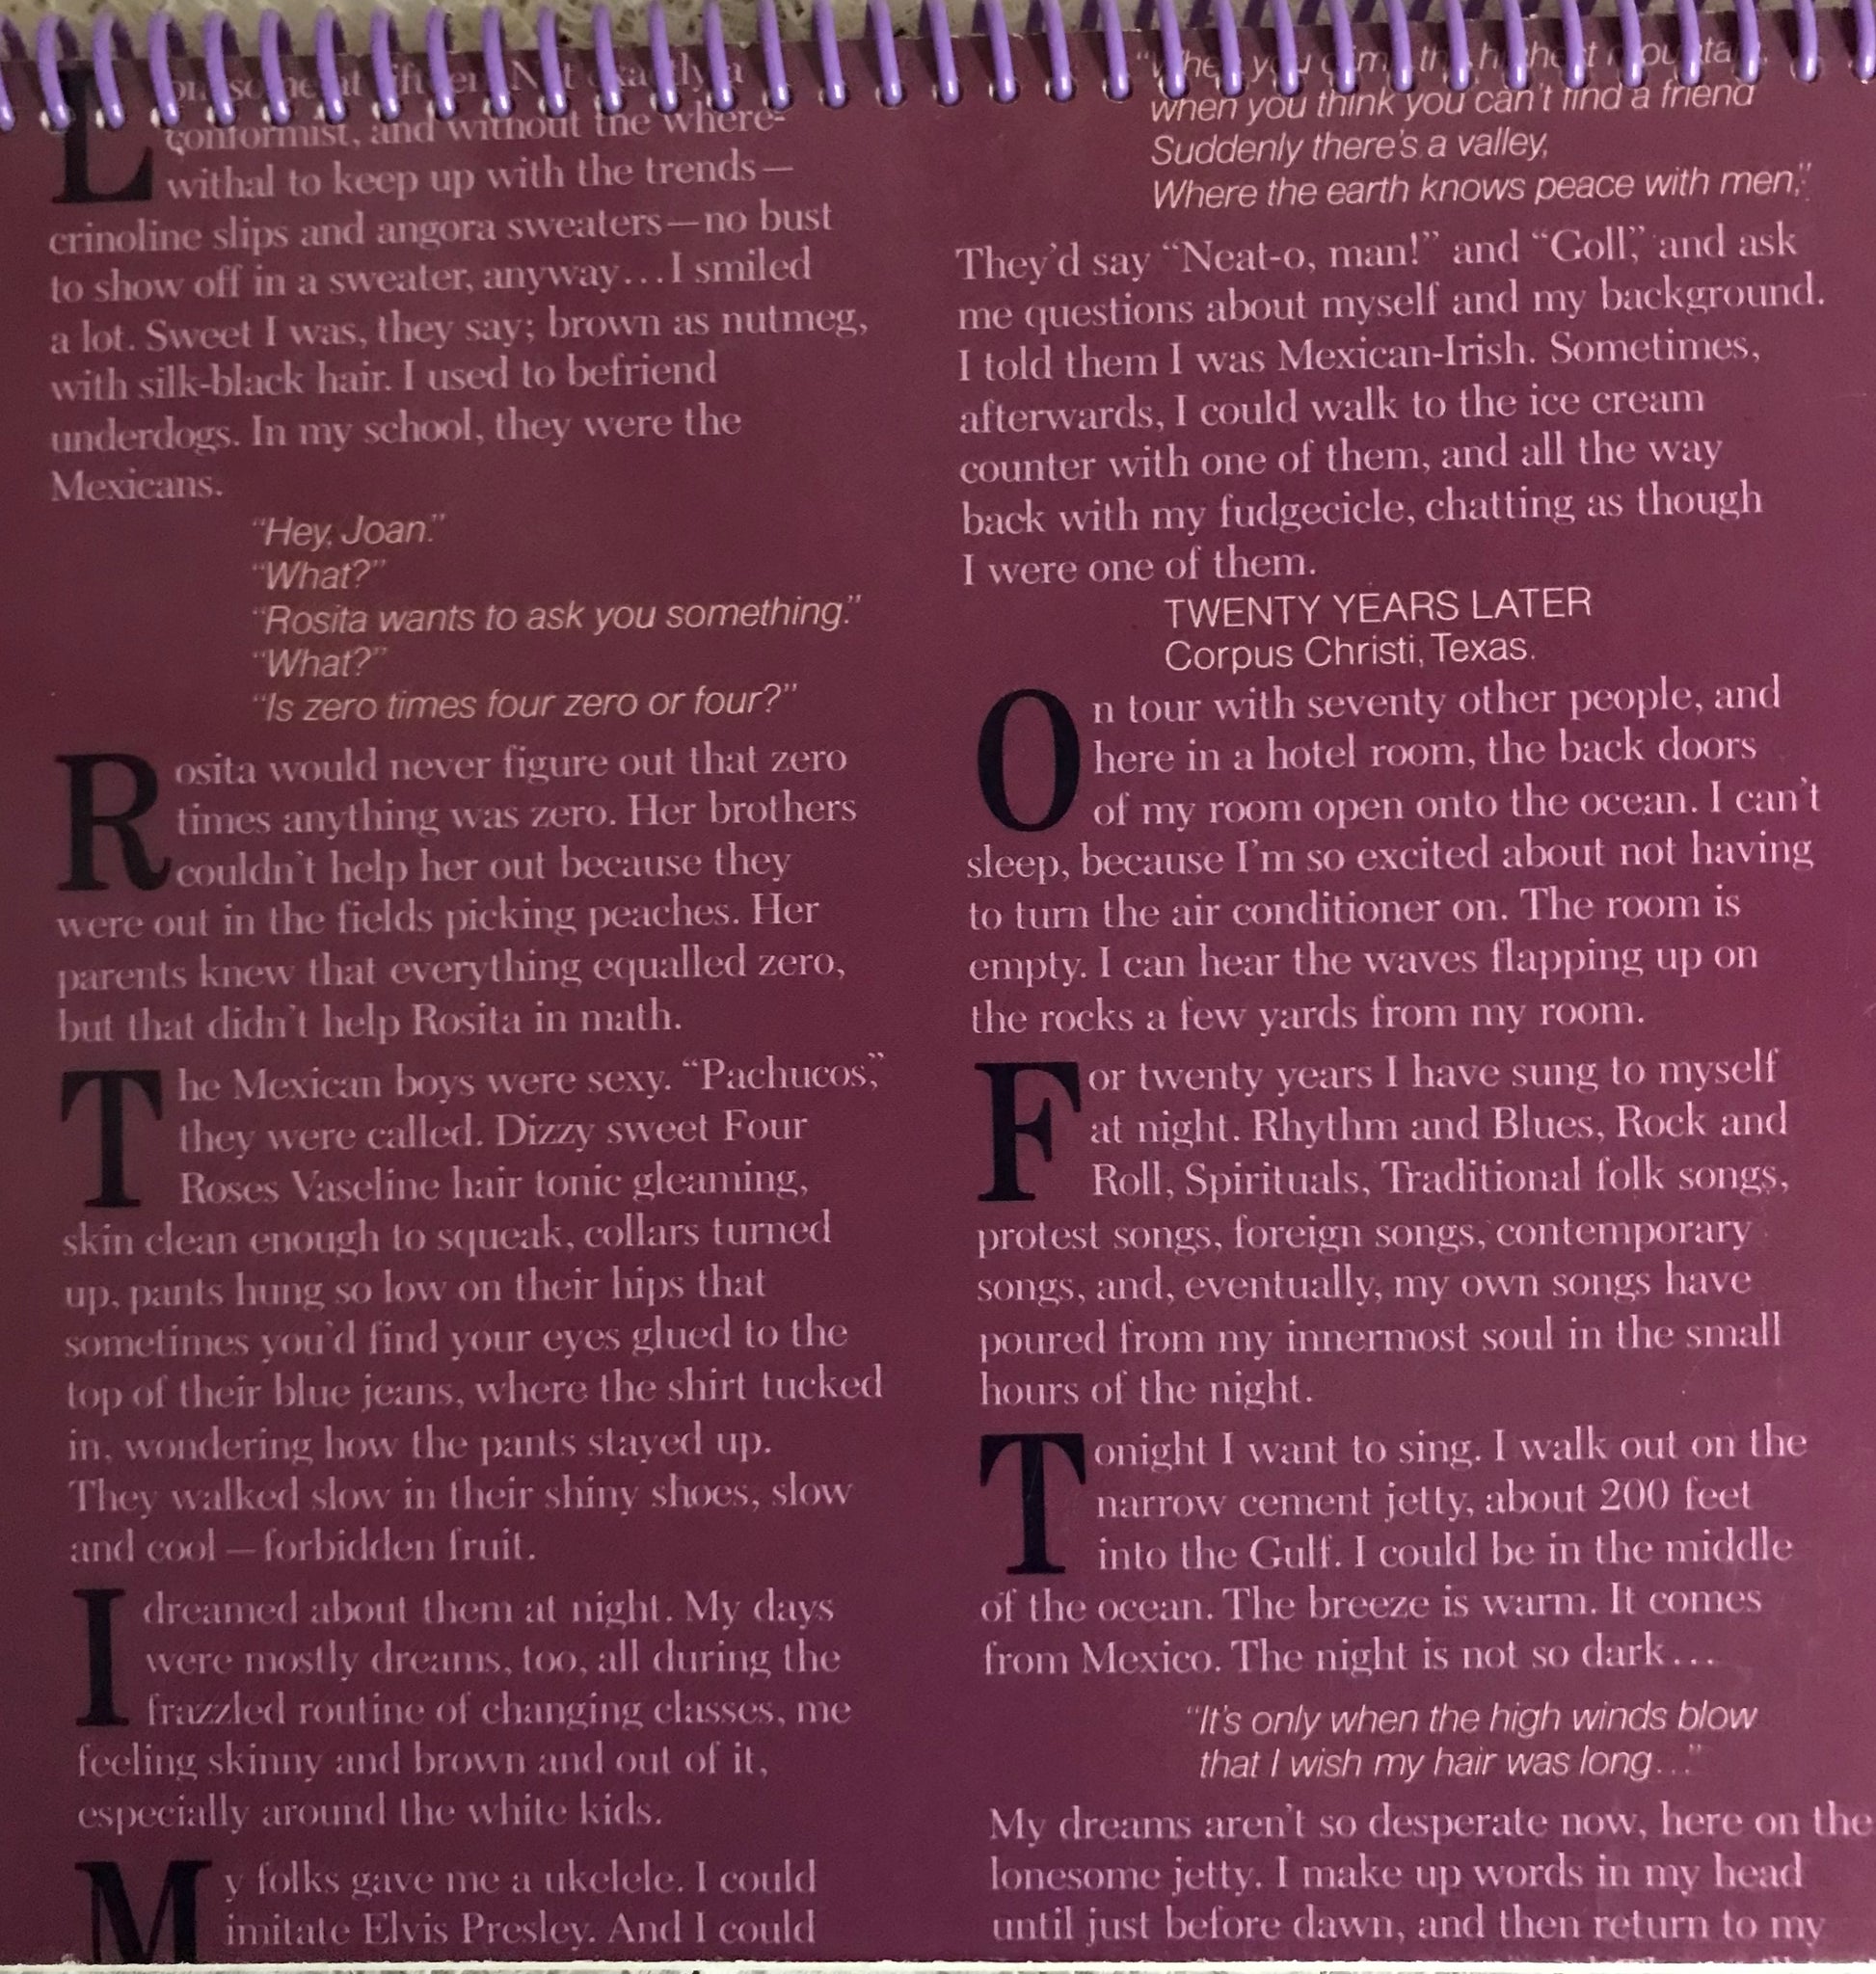 Lonesome at fifteen. Not exactly a
conformist, and without the where-
withal to keep up with the trends—
crinoline slips and angora sweaters—no bust
to show off in a sweater, anyway...I smiled
a lot. Sweet I was, they say; brown as nutmeg,
with silk-black hair. I used to befriend
underdogs. In my school, they were the
Mexicans.
“Hey, Joan.”
“What?”
“Rosita wants to ask you something.”
“What?”
“Is zero times four zero or four?”
Rosita would never figure out that zero
times anything was zero. Her brothers
couldn’t help her out because they
were out in the fields picking peaches. Her
parents knew that everything equalled zero,
but that didn’t help Rosita in math.
The Mexican boys were sexy. “Pachucos,”
they were called. Dizzy sweet Four
Roses Vaseline hair tonic gleaming,
skin clean enough to squeak, collars turned
up, pants hung so low on their hips that
sometimes you’d find your eyes glued to the
top of their blue jeans, where the shirt tucked
in, wondering how the pants stayed up.
They walked slow in their shiny shoes, slow
and cool—forbidden fruit.
I dreamed about them at night. My days
were mostly dreams, too, all during the
frazzled routine of changing classes, me
feeling skinny and brown and out of it,
especially around the white kids.
My folks gave me a ukelele. I could
imitate Elvis Presley. And I could
“When you climb the highest mountain,
when you think you can’t find a friend
Suddenly there’s a valley,
Where the earth knows peace with men,”
They’d say “Neat-o, man!” and “Goll,” and ask
me questions about myself and my background.
I told them I was Mexican-Irish. Sometimes,
afterwards, I could walk to the ice cream
counter with one of them, and all the way
back with my fudgecicle, chatting as though
I were one of them.
TWENTY YEARS LATER
Corpus Christi, Texas.
On tour with seventy other people, and
here in a hotel room, the back doors
of my room open onto the ocean. I can’t
sleep, because I’m so excited about not having
to turn the air conditioner on. The room is
empty. I can hear the waves flapping up on
the rocks a few yards from my room.
For twenty years I have sung to myself
at night. Rhythm and Blues, Rock and
Roll, Spirituals, Traditional folk songs,
protest songs, foreign songs, contemporary
songs, and, eventually, my own songs have
poured from my innermost soul in the small
hours of the night.
Tonight I want to sing. I walk out on the
narrow cement jetty, about 200 feet
into the Gulf. I could be in the middle
of the ocean. The breeze is warm. It comes
from Mexico. The night is not so dark...
“It’s only when the high winds blow
that I wish my hair was long...”
My dreams aren’t so desperate now, here on the
lonesome jetty. I make up words in my head
until just before dawn, and then return to my